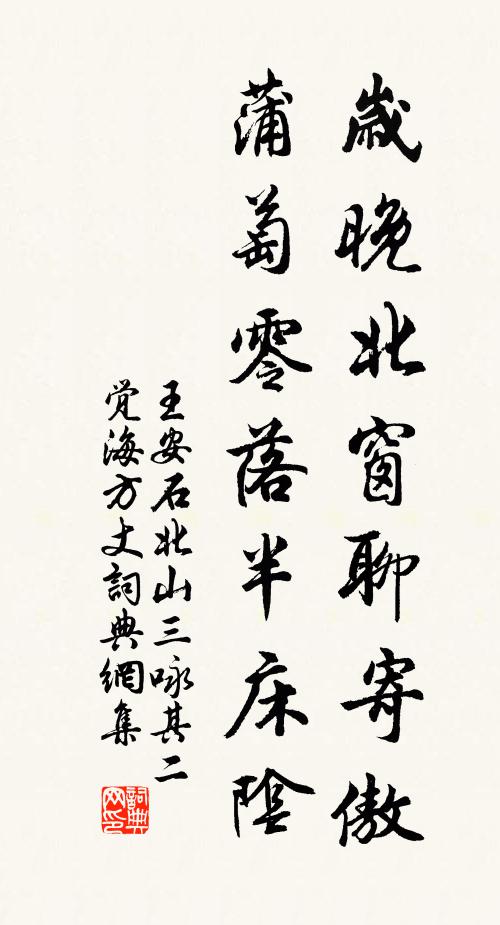 歲晚北窗聊寄傲
蒲萄零落半床陰
王安石北山三咏其二
覺海方丈詞典網集
詞典网印